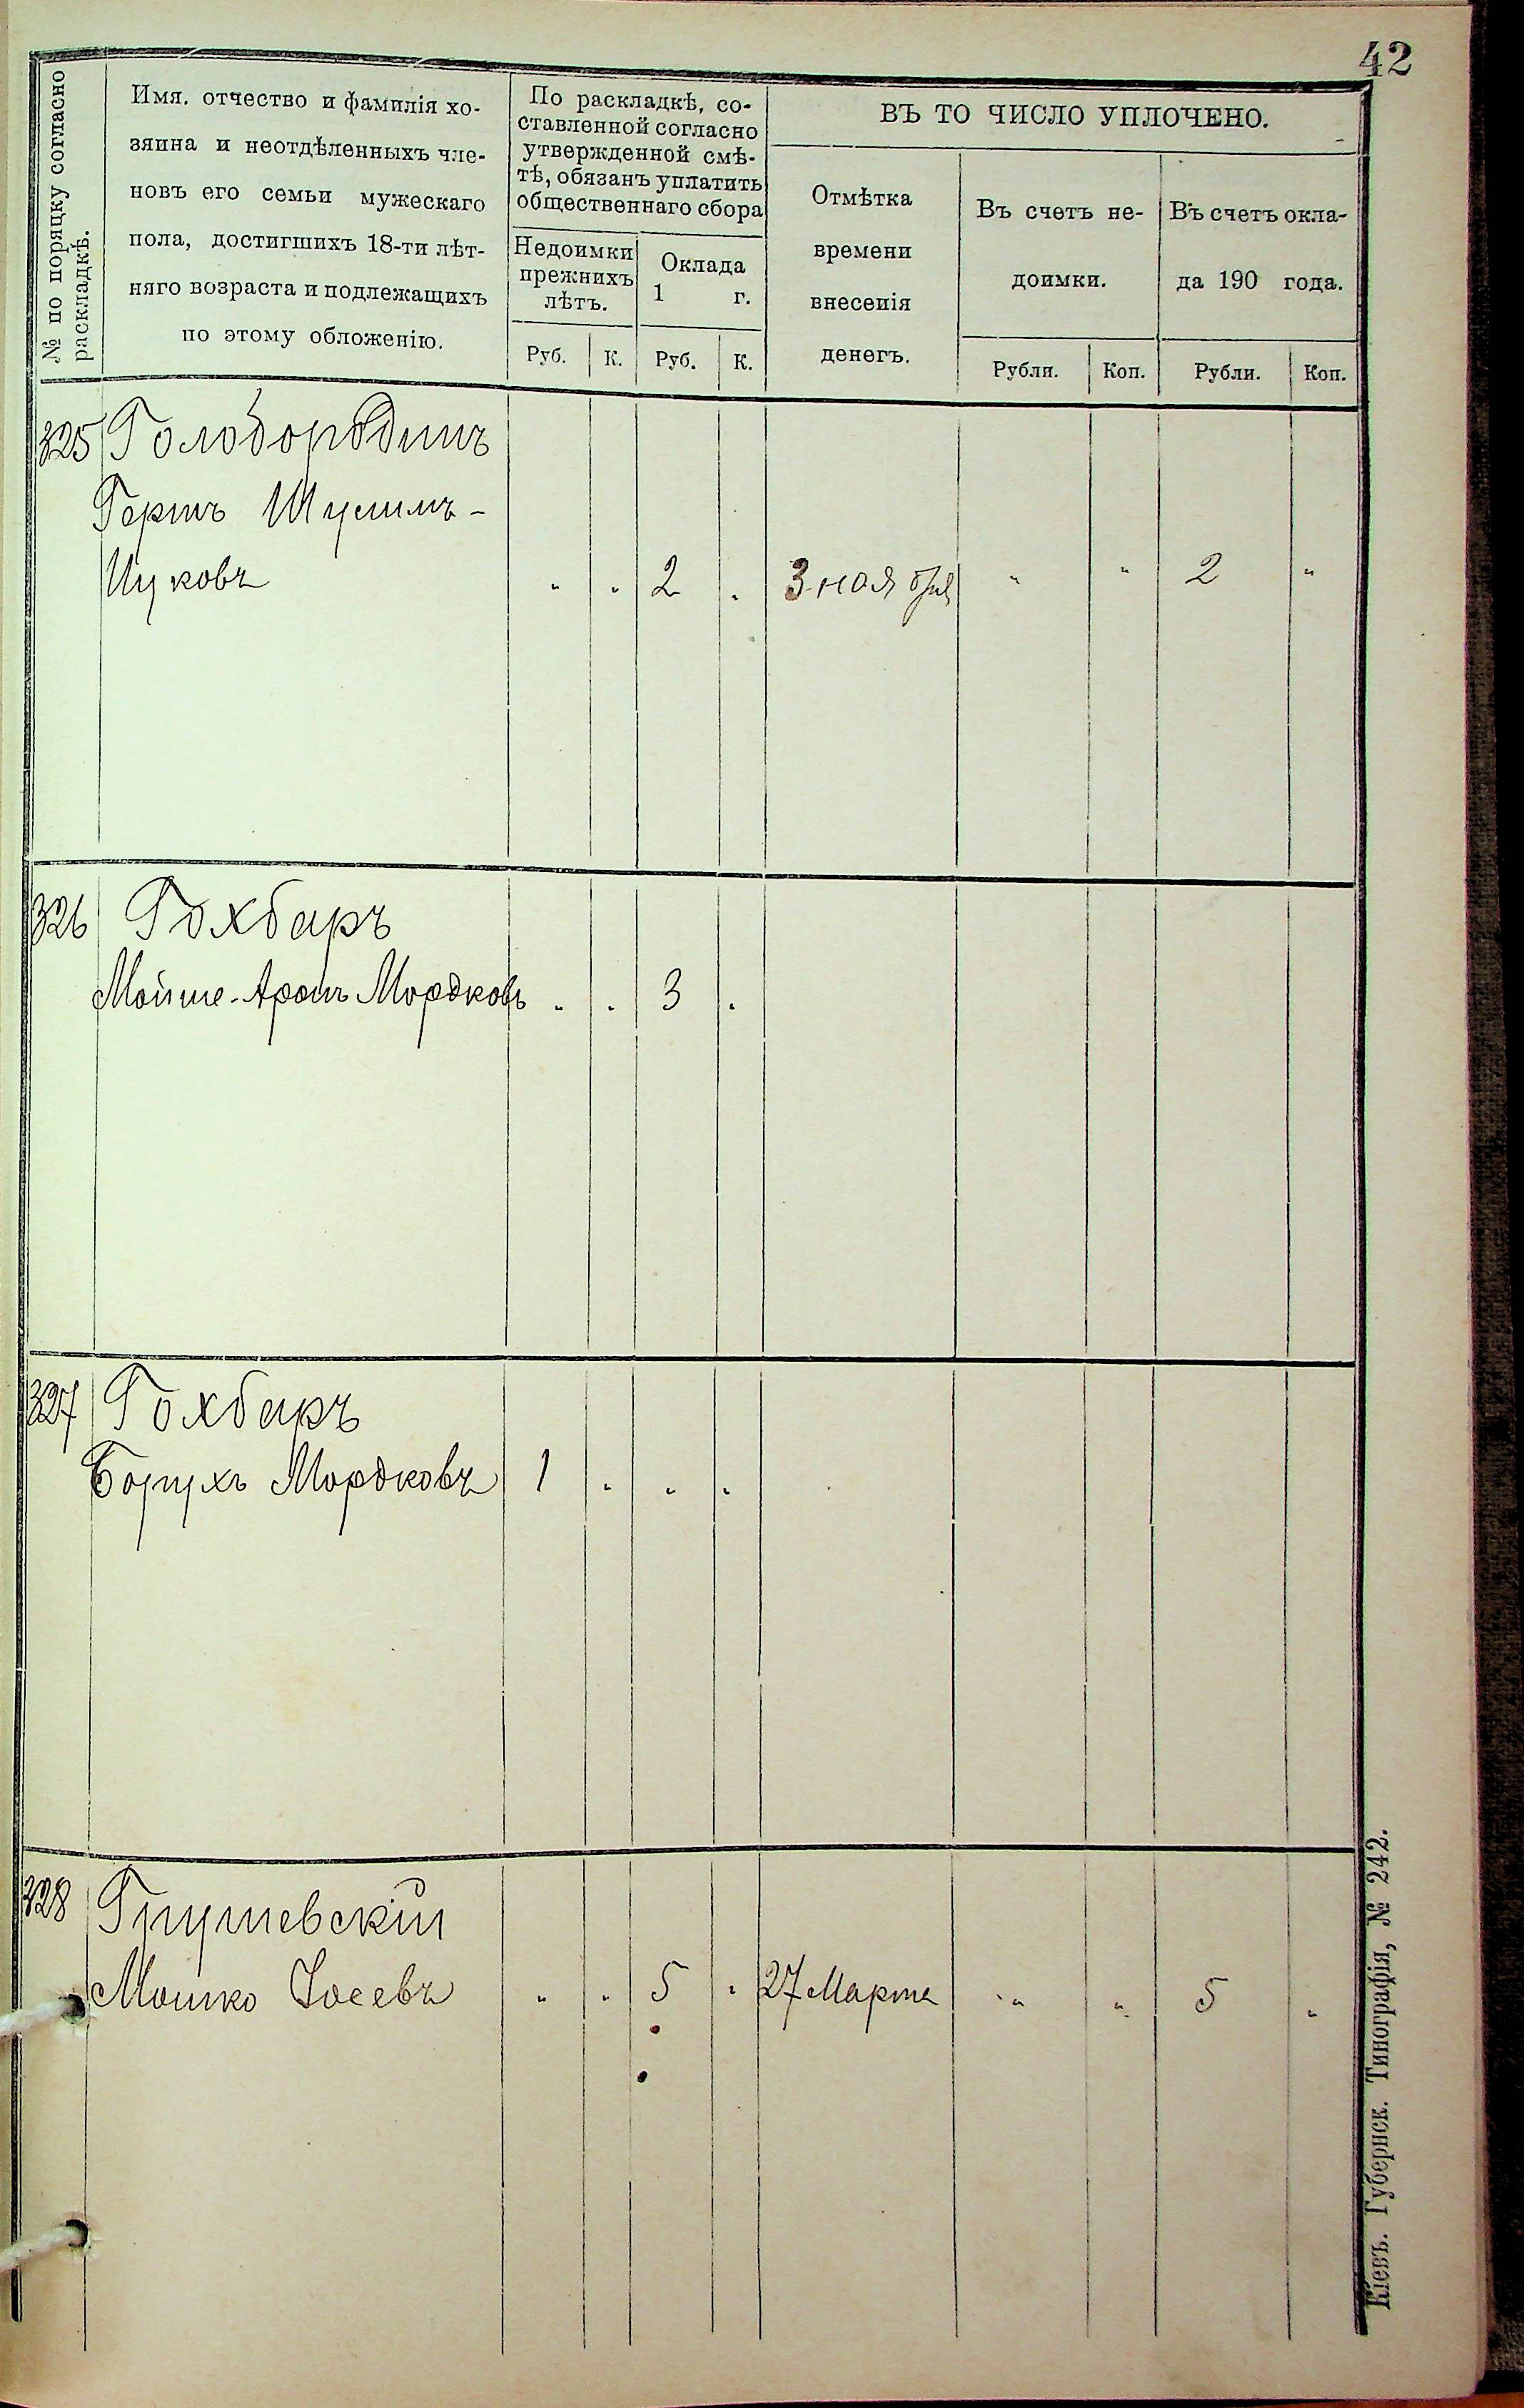 42
№ по порядку согласно
раскладкѣ.
Имя. отчество и фамилія хо-
зяина и неотдѣленныхъ чле-
новъ его семьи мужескаго
пола, достигшихъ 18-ти лѣт-
няго возраста и подлежащихъ
по этому обложенію.
По раскладкѣ, со-
ставленной согласно
утвержденной смѣ-
тѣ, обязанъ уплатить
общественнаго сбора
Недоимки
прежнихъ
лѣтъ.
Руб. К.
Оклада
1 г.
Руб. К.
ВЪ ТО ЧИСЛО УПЛОЧЕНО.
Отмѣтка
времени
внесенія
денегъ.
Въ счетъ не-
доимки.
Рубли. Коп.
Въ счетъ окла-
да 190 года.
Рубли. Коп.
325 Голобородинъ
Гершъ Шулимъ-
Ицковъ " " 2 " 3 ноября " " 2 "
326 Гохбаръ
Мойше-Аронъ Мордковъ " " 3 "
327 Гохбаръ
Борухъ Мордковъ 1 " " "
328 Грушевскій
Мошко Іосевъ " " 5 " 27 Марта " " 5 "
Кіевъ. Губернск. Типографія, № 242.